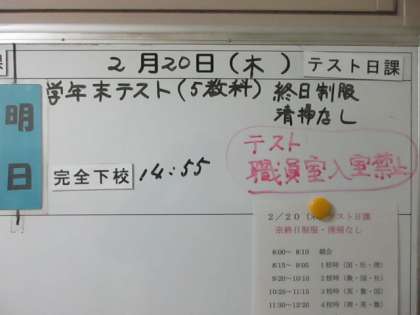 2月20日（木）
テスト日課
明日
学年末テスト（5教科）
終日制服
清掃なし
完全下校
14:55
テスト
職員室入室禁止
2／20（木）テスト日課
※終日制服・清掃なし
8:00～ 8:10 朝会
8:15～ 9:05 1校時
9:20～10:10 2校時
10:25～11:15 3校時
11:30～12:20 4校時